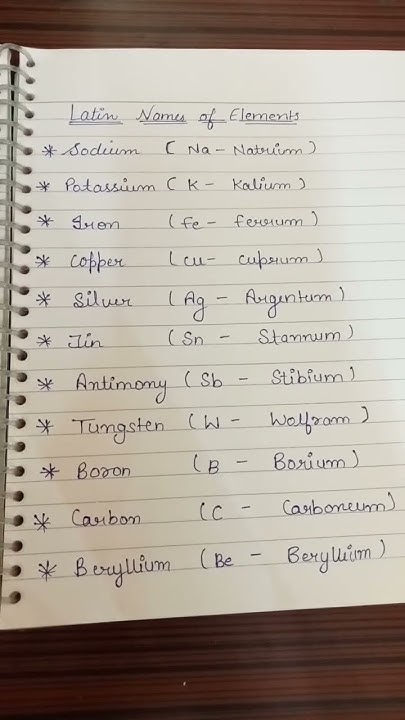 Latin Names of Elements
* Sodium (Na - Natrium)
* Potassium (K - Kalium)
* Iron (fe - ferrum)
* Copper (cu - cuprum)
* Silver (Ag - Argentum)
* Tin (Sn - Stannum)
* Antimony (Sb - Stibium)
* Tungsten (W - Wolfram)
* Boron (B - Borium)
* Carbon (C - Carboneum)
* Beryllium (Be - Beryllium)